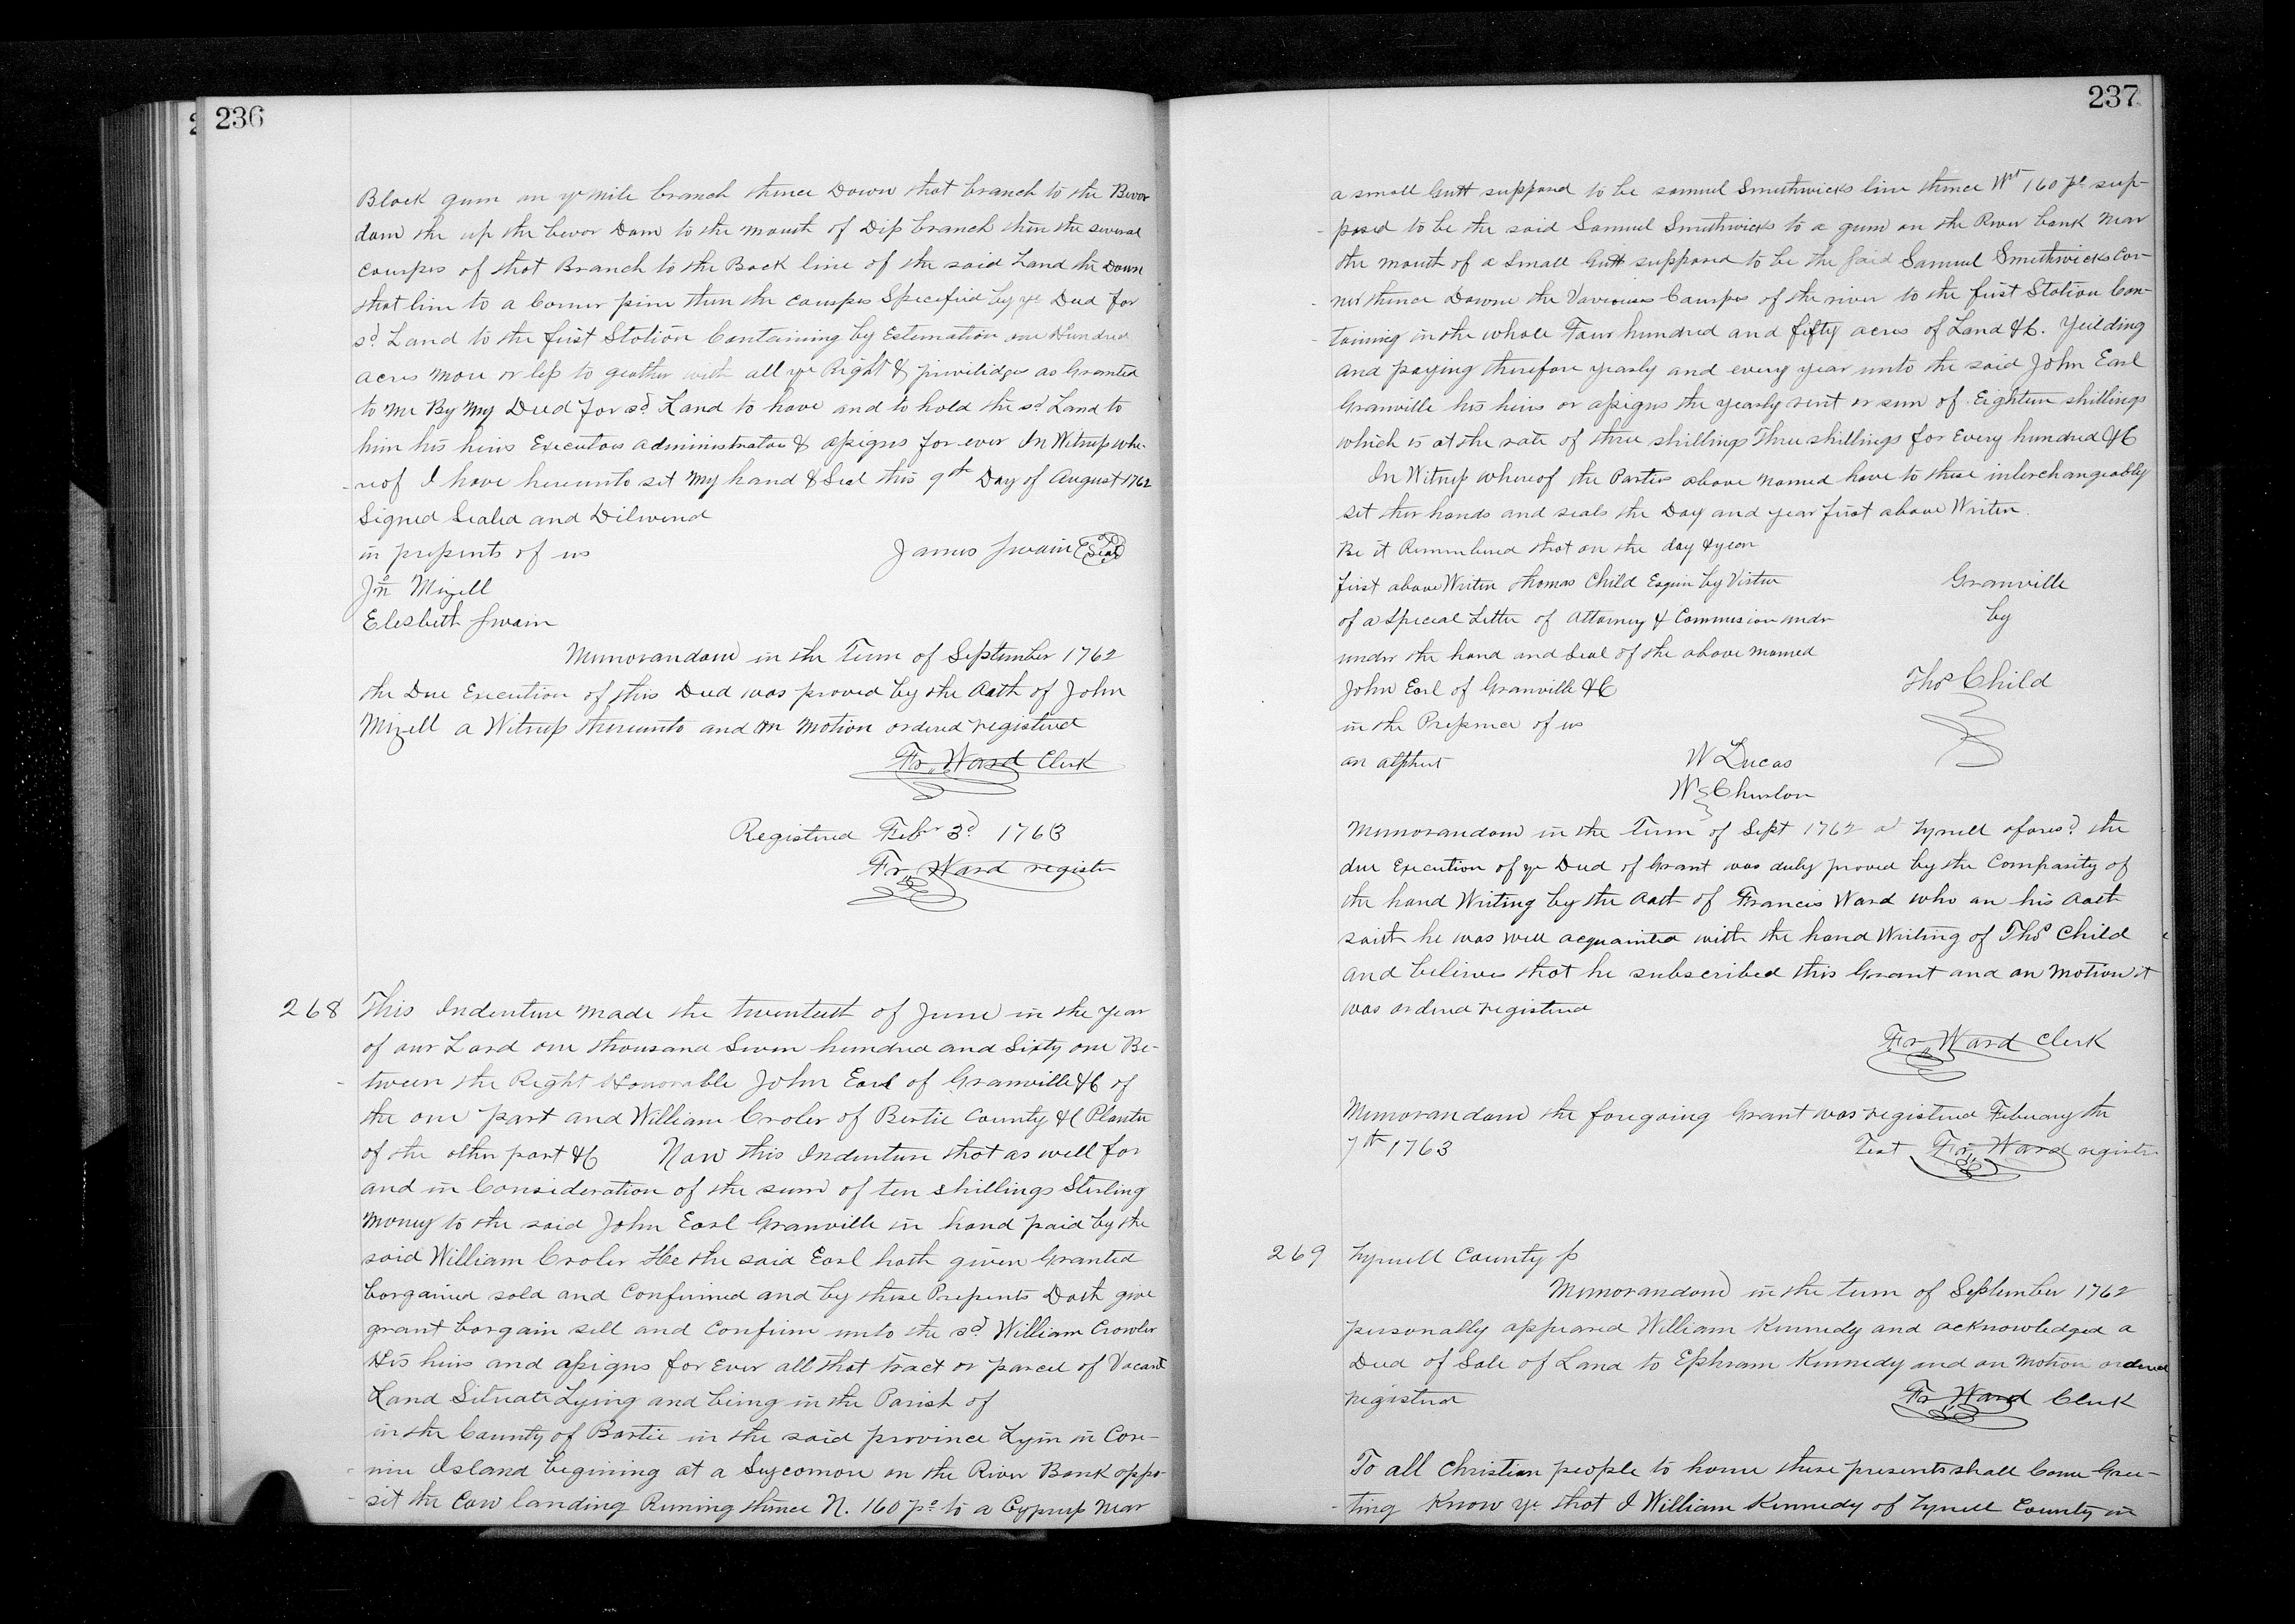 236
Black gum on ye mile branch thence Down that branch to the Bevor
dam the up the bevor Dam to the mouth of Dip branch then the several
Courses of that Branch to the Back line of the said Land the Down
that line to a Corner pine then the Courses Specified by ye Deed for
sd. Land to the first Station Containing by Estemation one Hundred
acres more or less to geather with all ye Right & privilidges as Granted
to me By My Deed for sd. Land to have and to hold the sd Land to
him his heirs Executors administrators & assigns for ever In Witness whe-
-reof I have hereunto set my hand & Seal this 9th Day of August 1762
Signed Sealed and Dilivered
in presents of us James Swain Seal
Jno Mizell
Elesbeth Swain
Memorandum in the Term of September 1762
the Due Execution of this Deed was proved by the Oath of John
Mizell a Witness thereunto and on motion ordered registered
Fr. Ward Clerk
Registered Febr 3d 1763
Fr. Ward registr
268 This Indenture made the twenteeth of June in the year
of our Lord one thousand Seven hundred and Sixty one Be-
-tween the Right Honorable John Earl of Granville &C of
the one part and William Croler of Bertie County &C Planter
of the other part &C Now this Indenture that as well for
and in Consideration of the sum of ten shillings Sterling
Money to the said John Earl Granville in hand paid by the
said William Croler He the said Earl hath given Granted
bargained sold and Confirmed and by these Presents Doth give
grant bargain sell and Confirm unto the sd. William Crowler
His heirs and assigns for Ever all that tract or parcel of Vacant
Land Situate Lying and being in the Parish of
in the County of Bartie in the said province Lyin in Con-
-nine Island begining at a Sycomore on the River Bank oppo-
-sit the Cow landing Runing thence N. 160 po to a Cypress Near
237
a small Gutt supposed to be samuel Smithwicks line thence Wst 160 po sup-
-posed to be the said Samuel Smithwicks to a gum on the River bank Near
the mouth of a Small Gutt supposed to be the said Samuel Smithwicks Cor-
-ner thence Downe the Variouses Courses of the river to the first Station Con-
-taining in the whole Four hundred and fifty acres of Land &C. Yeilding
and paying therefore yearly and every year unto the said John Earl
Granville his heirs or assigns the yearly rent or sum of Eighteen shillings
which is at the rate of three shillings Three shillings for Every hundred &C
In Witness whereof the Parties above named have to these interchangeably
set ther hands and seals the Day and year first above Writen
Be it Remembered that on the day & year
first above Writen Thomas Child Esquire by Virtue Granville
of a Special Letter of Attorney & Commision undr by
under the hand and Seal of the above named
John Earl of Granville &C Thos Child
in the Presence of us
W Lucas
Wm Churton
Memorandum in the Term of Sept 1762 at Tyrrell afores'd the
due Execution of ye Deed of Grant was duly proved by the Comparity of
the hand Writing by the Oath of Francis Ward who on his Oath
saith he was well acquainted with the hand Writing of Thos Child
and believes that he subscribed this Grant and on Motion it
was ordered registered
Fr. Ward Clerk
Memorandum the foregoing Grant was registered Febuary the
7th 1763 Test Fr. Ward registr
269 Tyrrell County ss
Memorandum in the term of September 1762
personally appeared William Kennedy and acknowledged a
Deed of Sale of Land to Ephram Kennedy and on Motion ordered
registered Fr. Ward Clerk
To all Christian people to home these presents shall Come Gree-
-ting Know Ye that I William Kennedy of Tyrrell County in